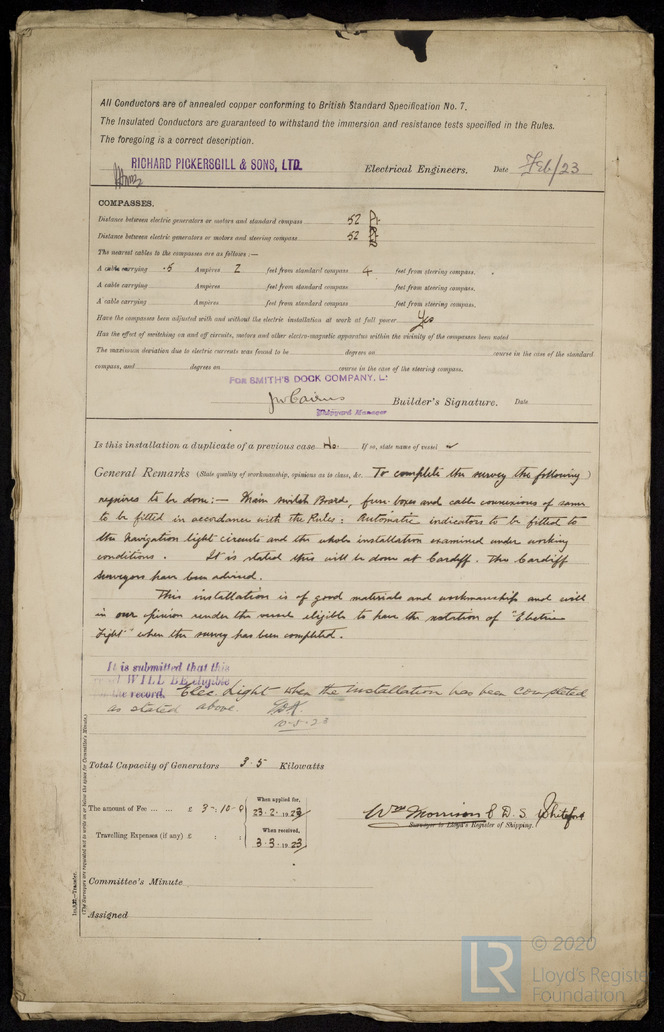 All Conductors are of annealed copper conforming to British Standard Specification No. 7.
The Insulated Conductors are guaranteed to withstand the immersion and resistance tests specified in the Rules.
The foregoing is a correct description.
RICHARD PICKERSGILL & SONS, LTD. Electrical Engineers. Date Feb/23
COMPASSES.
Distance between electric generators or motors and standard compass 52
Distance between electric generators or motors and steering compass 52
The nearest cables to the compasses are as follows :—
A cable carrying .5 Ampères 2 feet from standard compass 4 feet from steering compass.
A cable carrying Ampères feet from standard compass feet from steering compass.
A cable carrying Ampères feet from standard compass feet from steering compass.
Have the compasses been adjusted with and without the electric installation at work at full power Yes
Has the effect of switching on and off circuits, motors and other electro-magnetic apparatus within the vicinity of the compasses been noted
The maximum deviation due to electric currents was found to be degrees on course in the case of the standard
compass, and degrees on course in the case of the steering compass.
FOR SMITH'S DOCK COMPANY, L
JW Cairns Builder's Signature. Date
Shipyard Manager
Is this installation a duplicate of a previous case No. If so, state name of vessel
General Remarks (State quality of workmanship, opinions as to class, &c. To complete the survey the following)
requires to be done :— Main switch Board, fuse boxes and cable connexions of same
to be fitted in accordance with the Rules : Automatic indicators to be fitted to
the navigation light circuits and the whole installation examined under working
conditions. It is stated this will be done at Cardiff. The Cardiff
surveyors have been advised.
This installation is of good materials and workmanship and will
in our opinion render the vessel eligible to have the notation of "Electric
Light" when the survey has been completed.
It is submitted that this
WILL BE eligible
the record. Elec. Light when the installation has been completed
as stated above.
10-5-23
Total Capacity of Generators 3.5 Kilowatts
The amount of Fee ... ... £ 3-:10-:0 When applied for, 23.2.1923
Travelling Expenses (if any) £ : : When received, 3.3.1923
Wm Morrison & D. S. Whiteford
Surveyor to Lloyd's Register of Shipping.
Committee's Minute
Assigned
(The Surveyors are requested not to write on or below the space for Committee's Minute.)
© 2020
LR
Lloyd's Register
Foundation